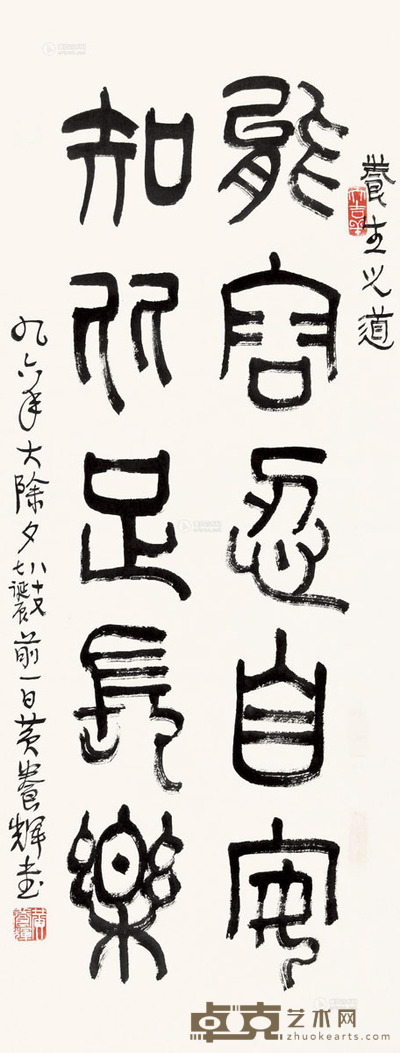 養生之道
能容忍自安
知分足長樂
九六年大除夕八十又七誕辰前一日黄養輝書
卓克艺术网
zhuokearts.com